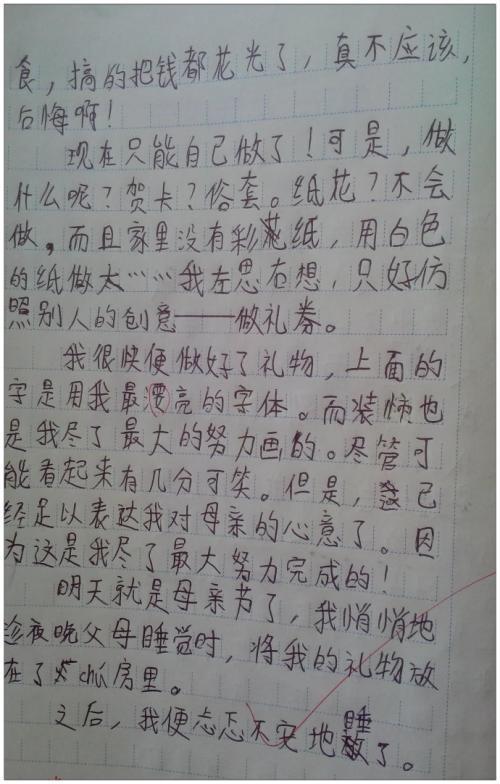 食，搞的把钱都花光了，真不应该，
后悔啊！
现在只能自己做了！可是，做
什么呢？贺卡？俗套。纸花？不会
做。而且家里没有彩纸，用白色
的纸做太……我左思右想，只好仿
照别人的创意——做礼券。
我很快便做好了礼物，上面的
字是用我最漂亮的字体。而装饰也
是我尽了最大的努力画的。尽管可
能看起来有几分可笑。但是，这已
经足以表达我对母亲的心意了。因
为这是我尽了最大努力完成的！
明天就是母亲节了，我悄悄地
趁夜晚父母睡觉时，将我的礼物放
在了chú房里。
之后，我便忐忑不安地睡了。